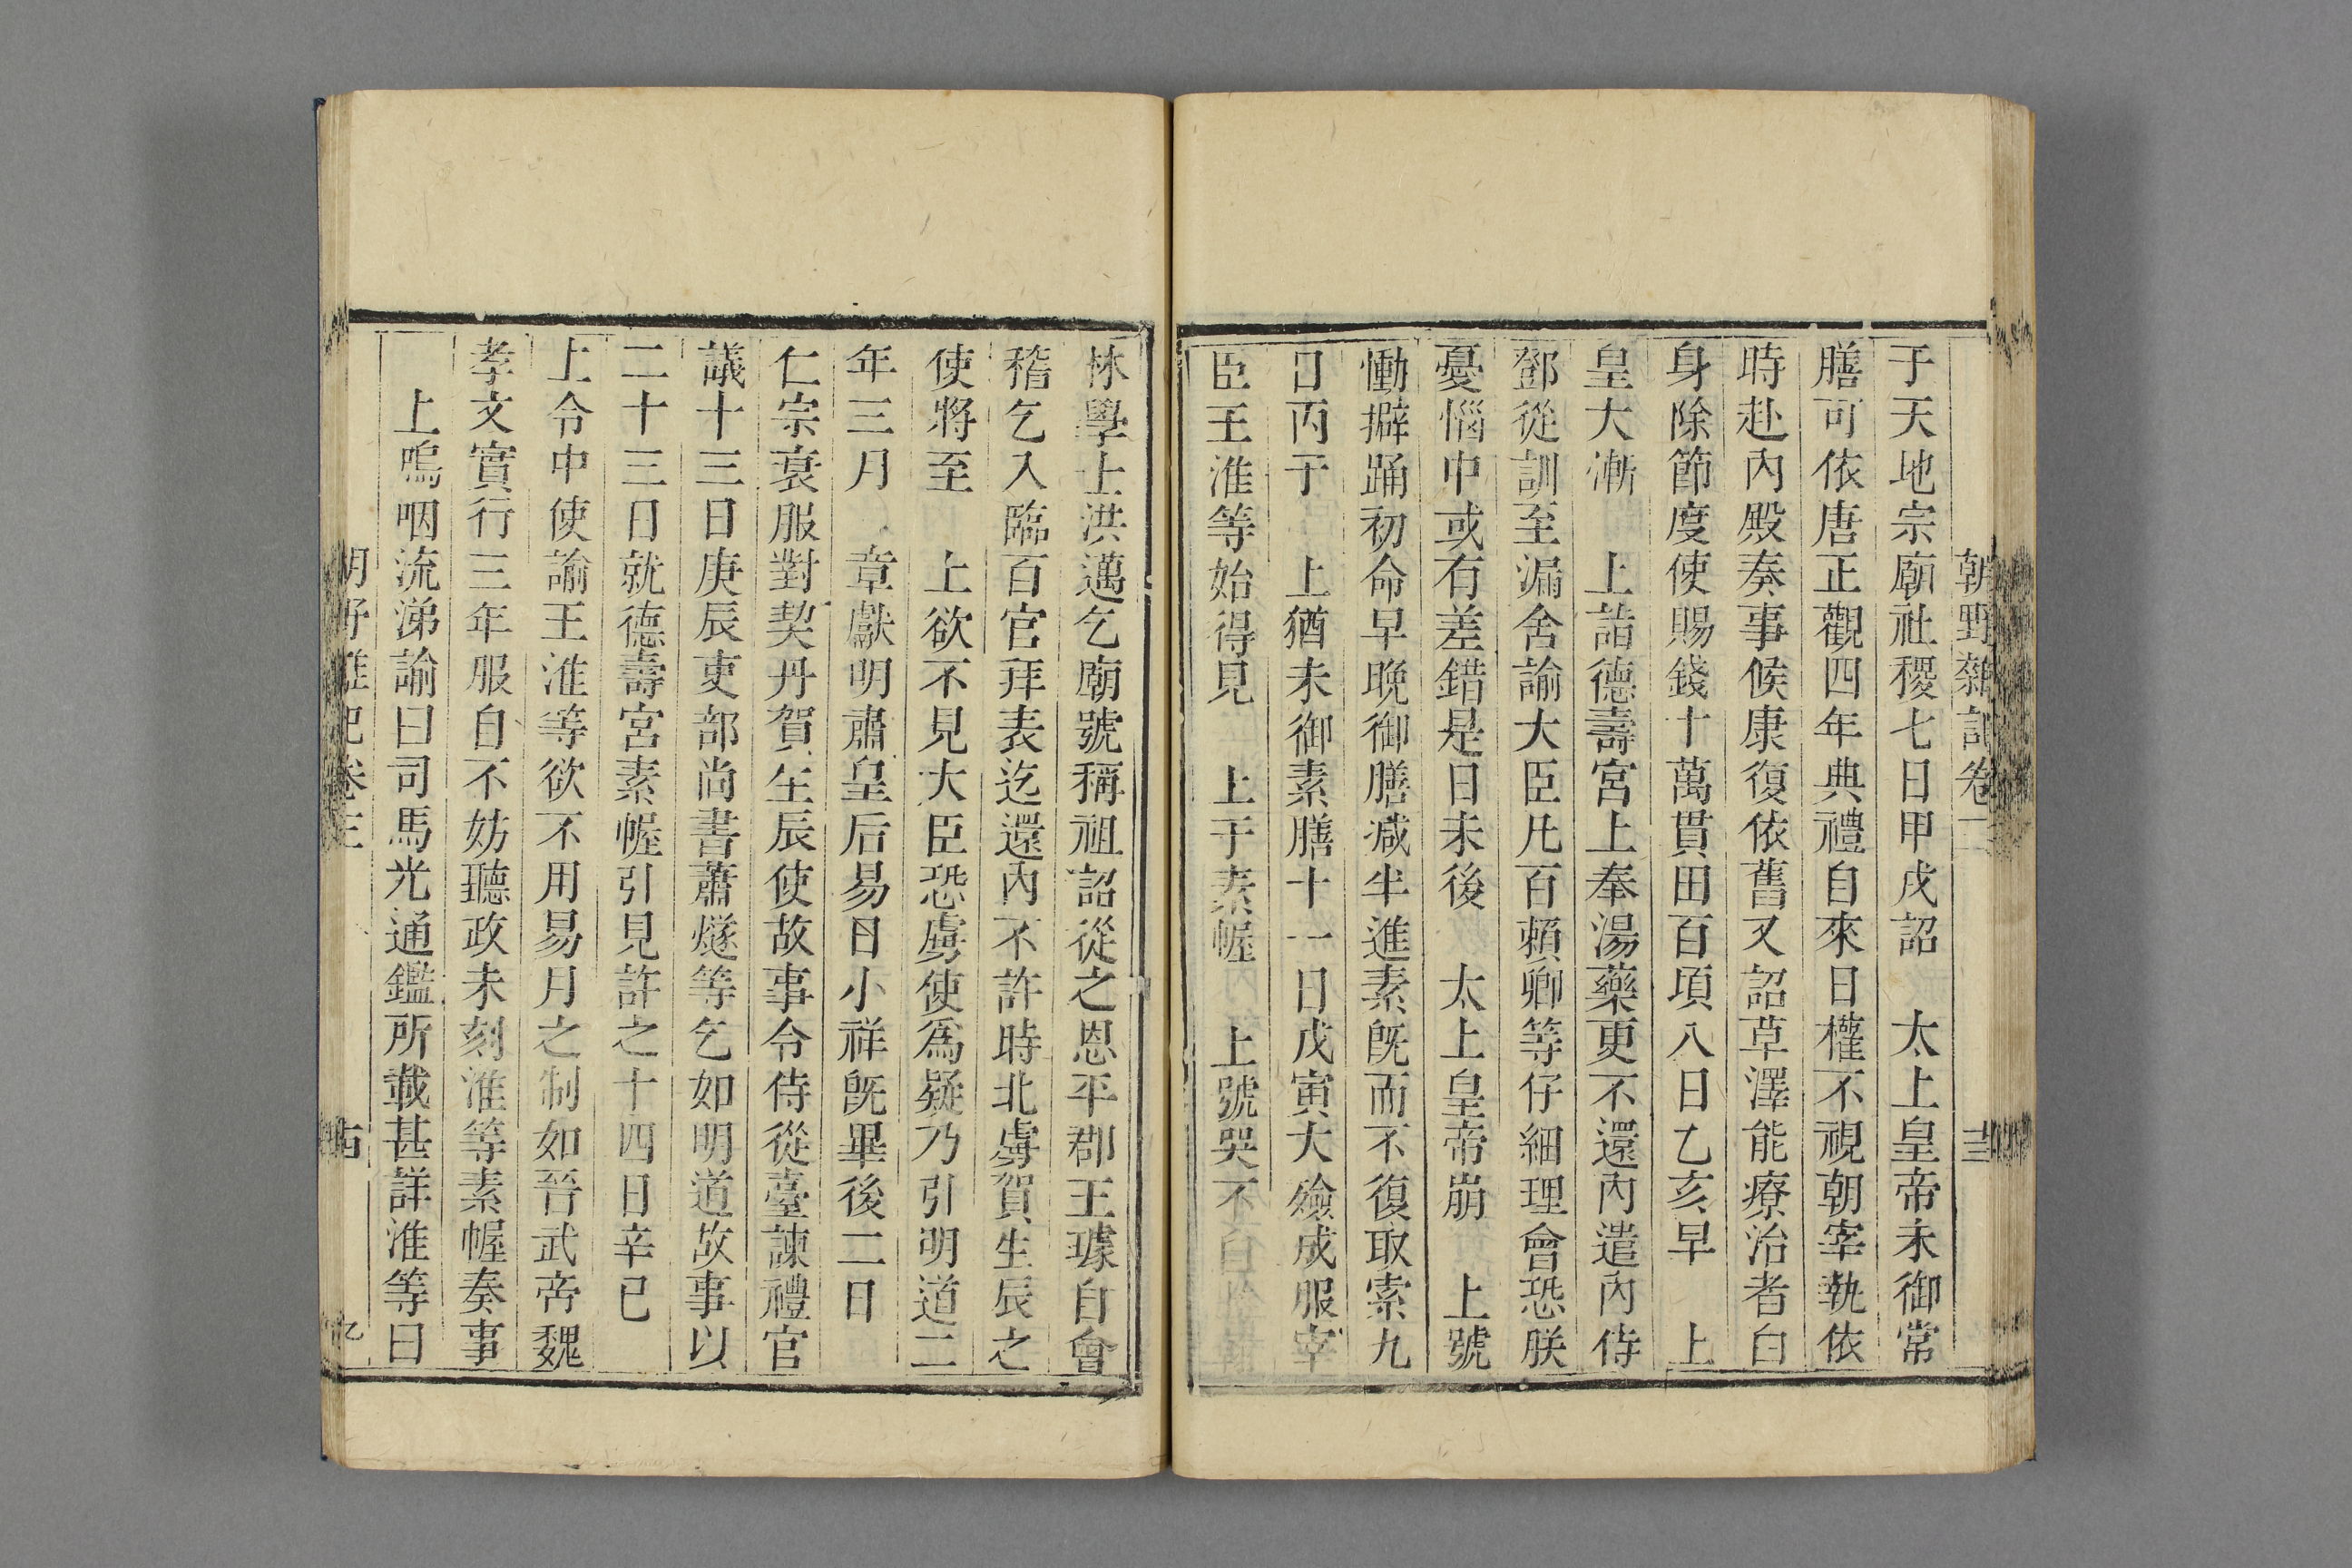 朝野雜記卷二
于天地宗廟社稷七日甲戌詔　太上皇帝未御常
膳可依唐正觀四年典禮自來日權不視朝宰執依
時赴內殿奏事候康復依舊又詔草澤能療治者白
身除節度使賜錢十萬貫田百項八日乙亥早　上
皇大漸　上詣德壽宮上奉湯藥更不還內遣內侍
鄧從訓至漏舍諭大臣凡百賴卿等仔細理會恐朕
憂惱中或有差錯是日未後　太上皇帝崩　上號
慟擗踊初命早晚御膳減半進素旣而不復取索九
日丙子　上猶未御素膳十一日戊寅大殮成服宰
臣王淮等始得見　上于素幄　上號哭不
林學士洪邁乞廟號稱祖詔從之恩平郡王璩自會
稽乞入臨百官拜表迄還內不許時北虜賀生辰之
使將至　上欲不見大臣恐虜使爲疑乃引明道二
年三月　章獻明肅皇后易日小祥旣畢後二日
仁宗衰服對契丹賀生辰使故事令侍從臺諫禮官
議十三日庚辰吏部尚書蕭燧等乞如明道故事以
二十三日就德壽宮素幄引見許之十四日辛巳
上令中使諭王淮等欲不用易月之制如晉武帝魏
孝文實行三年服自不妨聽政未刻淮等素幄奏事
上嗚咽流涕諭曰司馬光通鑑所載甚詳淮等曰